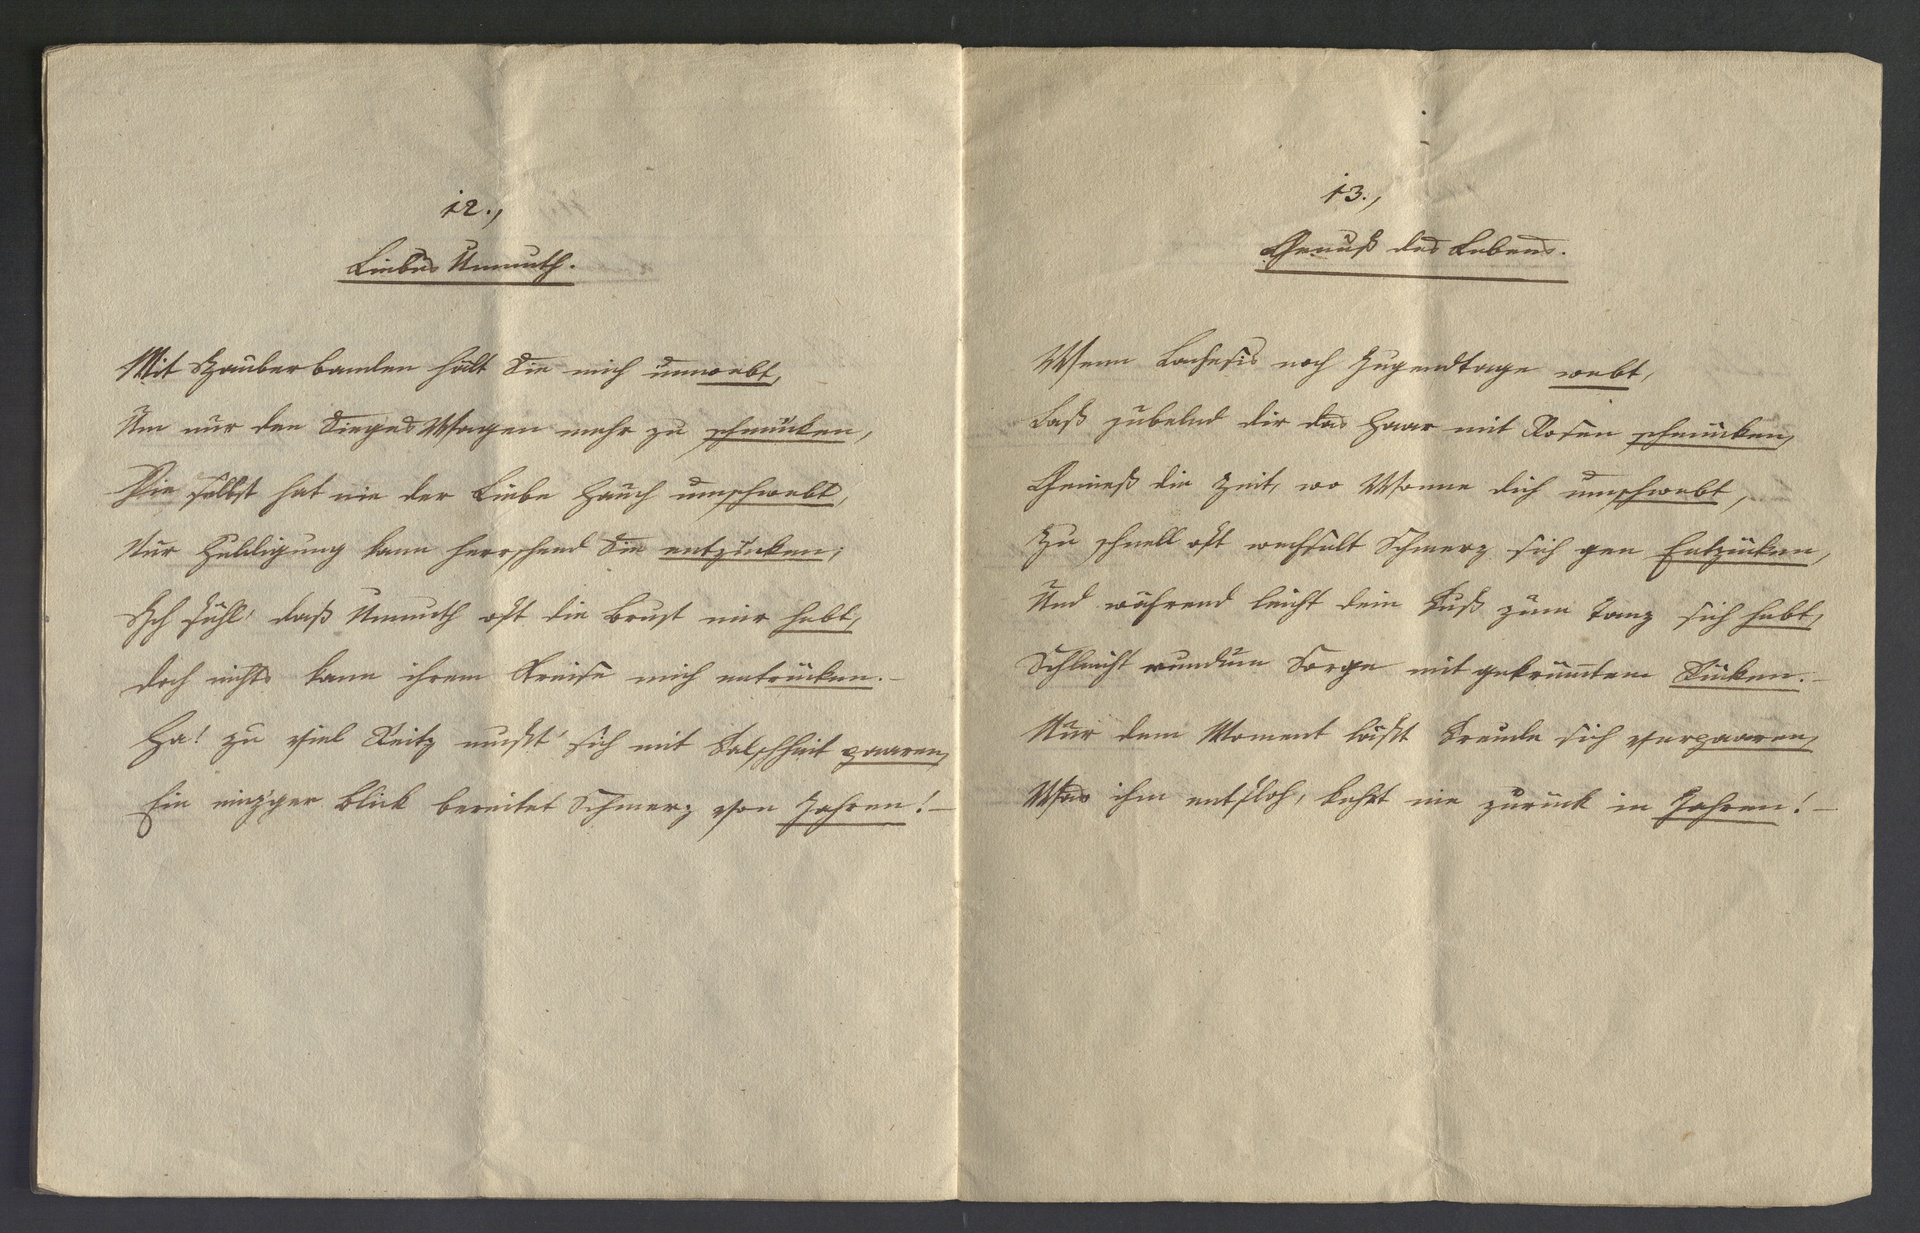 12.,
Liebes Unmuth.
Mit Zauberbanden hält Sie mich umwebt,
Um nur den Sieges Wagen mehr zu schmücken,
Sie selbst hat nie der Liebe Hauch umschwebt,
Nur Huldigung kann herrschend Sie entzücken;
Ich fühl' daß Unmuth oft die Brust mir hebt,
Doch nichts kann ihrem Kreise mich entrücken. –
Ha! zu viel Reitz mußt' sich mit Falschheit paaren,
Ein einz'ger Blick bereitet Schmerz von Jahren! –
13.,
Genuß des Lebens.
Wenn Lachesis noch Jugendtage webt,
Laß jubelnd dir das Haar mit Rosen schmücken,
Genieß die Zeit, wo Wonne dich umschwebt,
Zu schnell oft wechselt Schmerz sich gen Entzücken,
Und während leicht dein Fuß zum Tanz sich hebt,
Schleicht rundum Sorge mit gekrümmtem Rücken. –
Nur dem Moment läßt Freude sich verpaaren,
Was ihm entfloh, kehrt nie zurück in Jahren! –